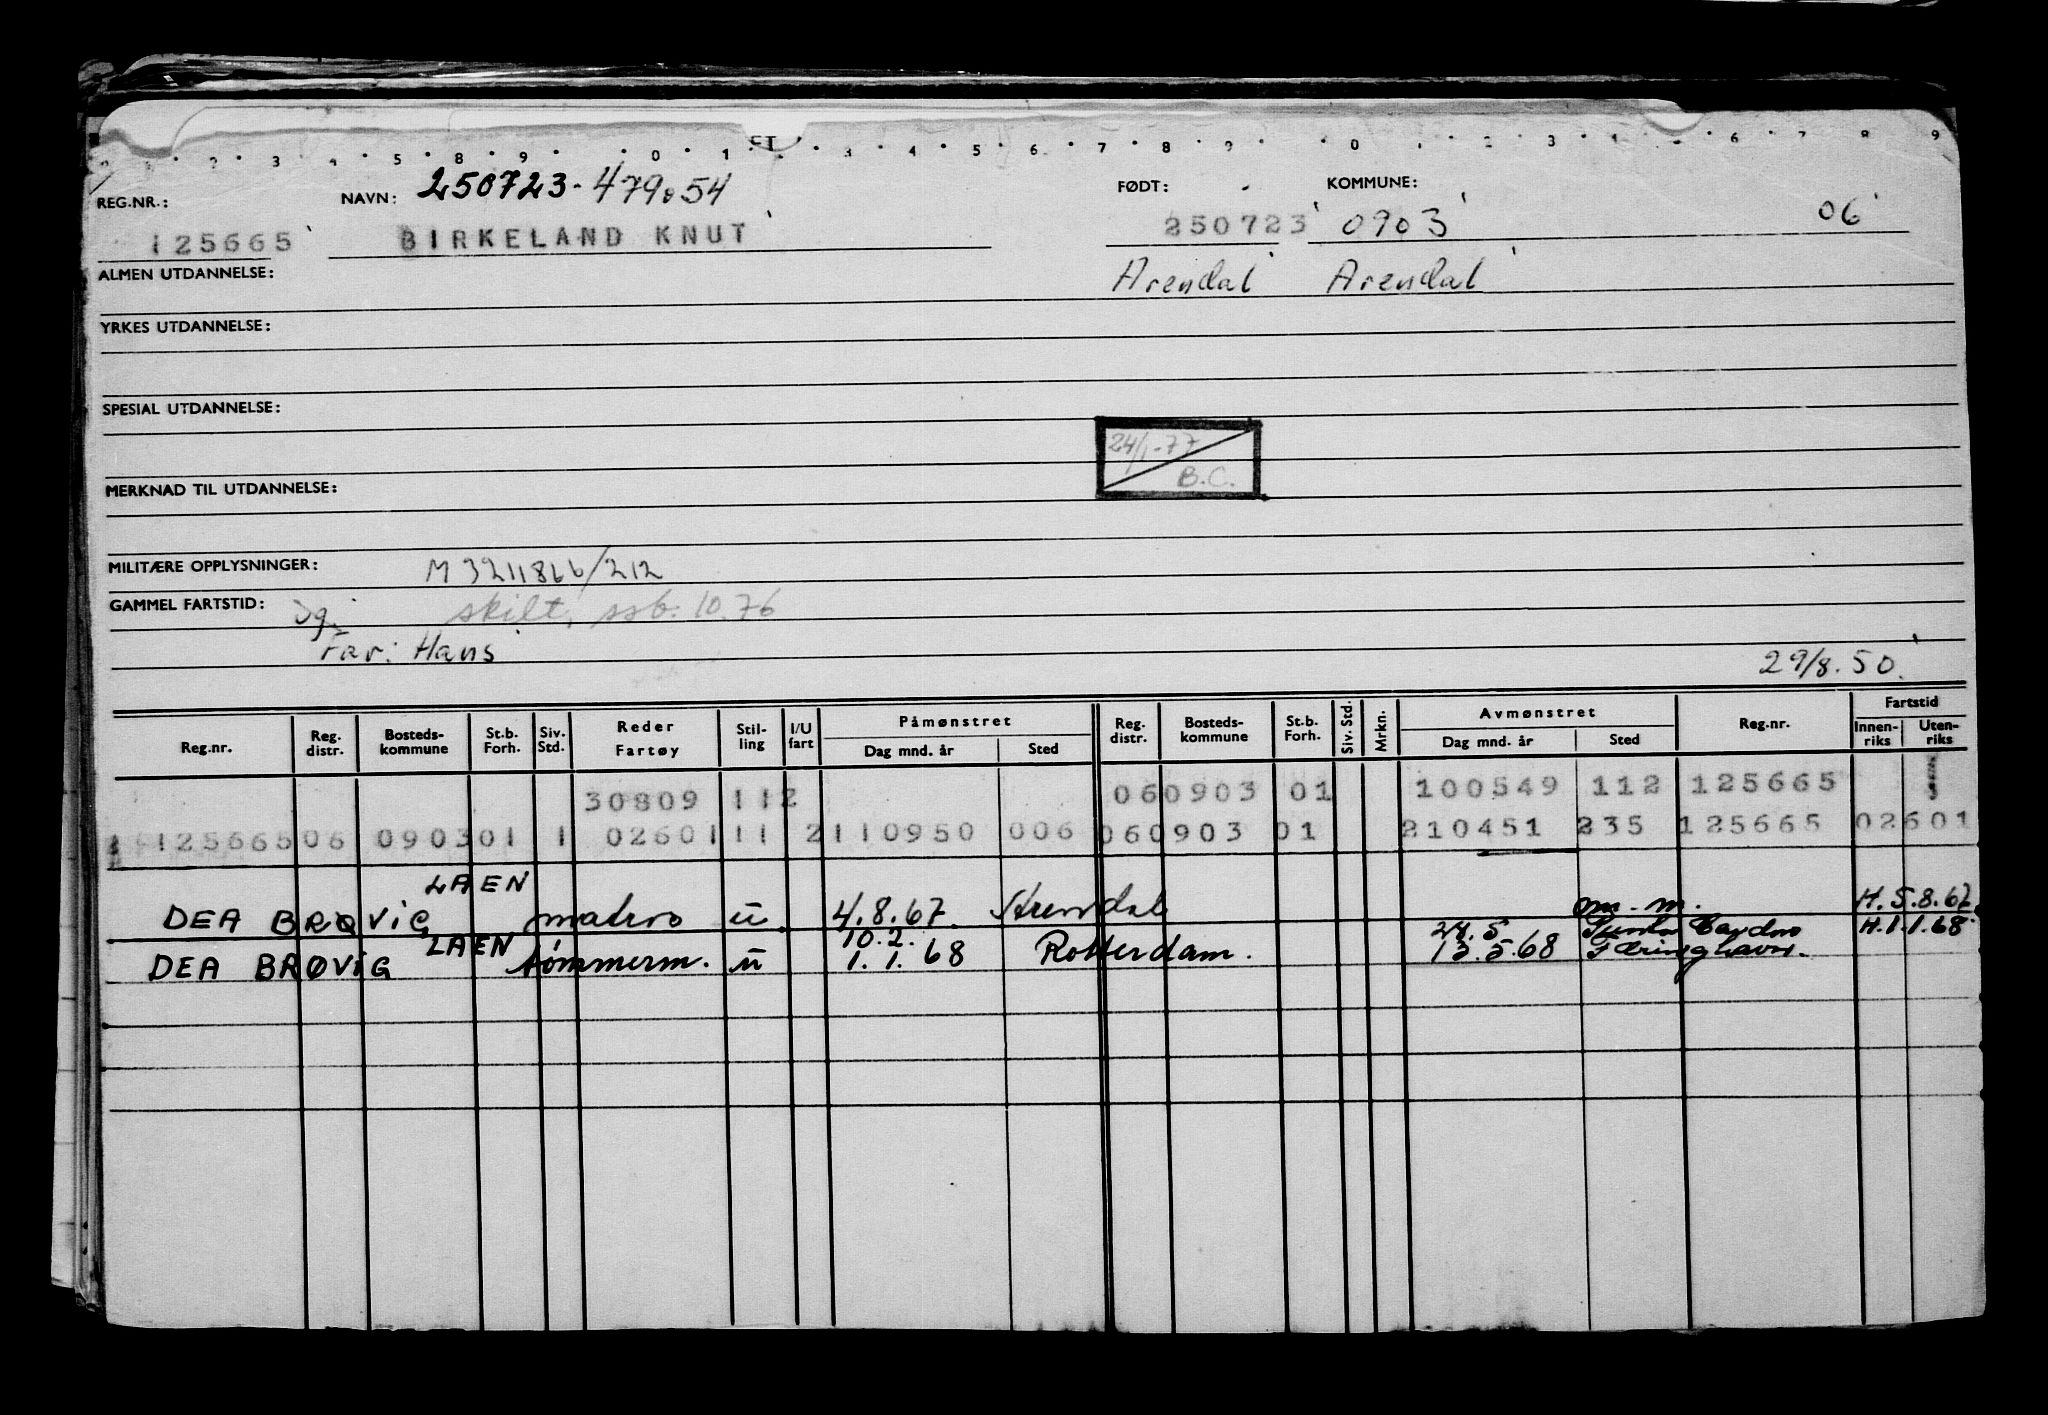 REG.NR.: NAVN: 250723-479054 FØDT: KOMMUNE:
125665 BIRKELAND KNUT 250723 0903 06
ALMEN UTDANNELSE: Arendal Arendal
YRKES UTDANNELSE:
SPESIAL UTDANNELSE:
24/1-77
B.C.
MERKNAD TIL UTDANNELSE:
MILITÆRE OPPLYSNINGER: M 3211866/212
GAMMEL FARTSTID: skilt, ssb. 10.76
Far: Hans
29/8.50
Reg.nr. Reg. distr. Bosteds-kommune St.b. Forh. Siv. Std. Reder Fartøy Stil-ling I/U fart Påmønstret Dag mnd. år Sted Reg. distr. Bosteds-kommune St.b. Forh. Siv. Std. Mrkn. Avmønstret Dag mnd. år Sted Reg.nr. Fartstid Innen-riks Uten-riks
30809 112 060903 01 100549 112 125665
125665 06 0903 01 1 02601 11 2 110950 006 060903 01 210451 235 125665 02601
LAEN
DEA BRØVIG matros u. 4.8.67. Arendal m.m. H.5.8.67
LAEN 10.2. 24.5 H.1.1.68
DEA BRØVIG tømmerm. u 1.1.68 Rotterdam. 13.5.68 Færinghavn.